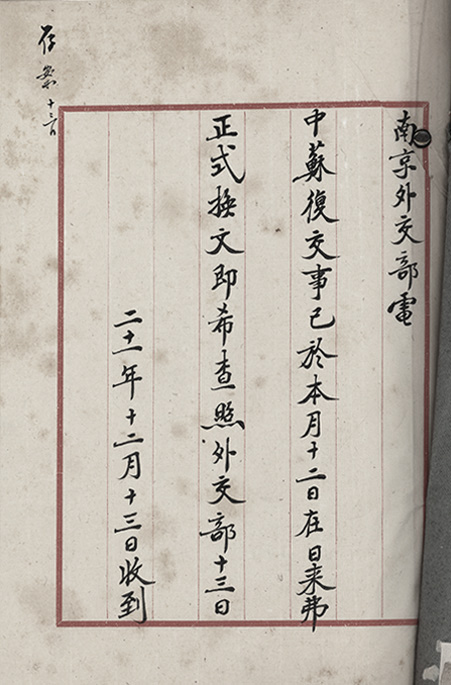 南京外交部電
中蘇復交事已於本月十二日在日来弗
正式換文即希查照外交部十三日
二十一年十二月十三日收到
存案 十三日